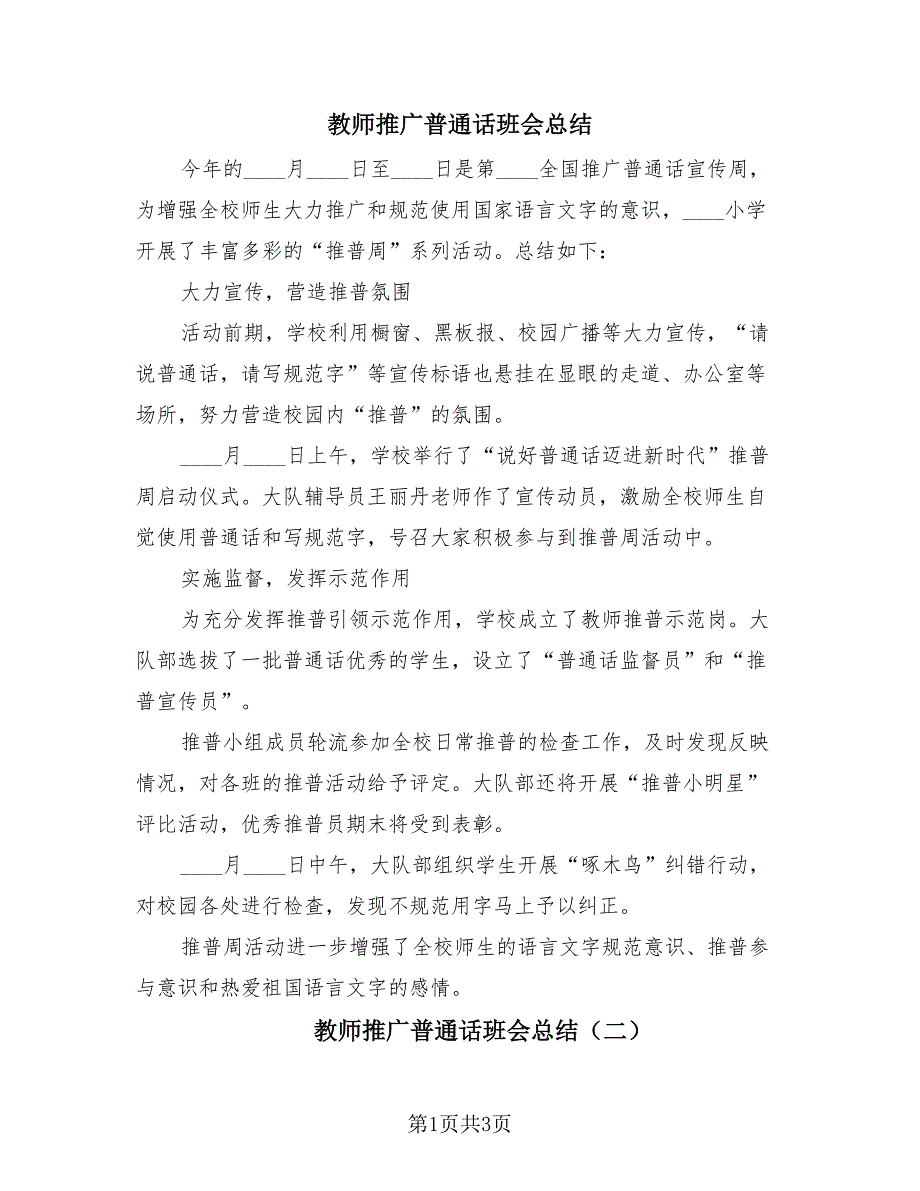 教师推广普通话班会总结
今年的____月____日至____日是第____全国推广普通话宣传周，
为增强全校师生大力推广和规范使用国家语言文字的意识，____小学
开展了丰富多彩的“推普周”系列活动。总结如下：
大力宣传，营造推普氛围
活动前期，学校利用橱窗、黑板报、校园广播等大力宣传，“请
说普通话，请写规范字”等宣传标语也悬挂在显眼的走道、办公室等
场所，努力营造校园内“推普”的氛围。
____月____日上午，学校举行了“说好普通话迈进新时代”推普
周启动仪式。大队辅导员王丽丹老师作了宣传动员，激励全校师生自
觉使用普通话和写规范字，号召大家积极参与到推普周活动中。
实施监督，发挥示范作用
为充分发挥推普引领示范作用，学校成立了教师推普示范岗。大
队部选拔了一批普通话优秀的学生，设立了“普通话监督员”和“推
普宣传员”。
推普小组成员轮流参加全校日常推普的检查工作，及时发现反映
情况，对各班的推普活动给予评定。大队部还将开展“推普小明星”
评比活动，优秀推普员期末将受到表彰。
____月____日中午，大队部组织学生开展“啄木鸟”纠错行动，
对校园各处进行检查，发现不规范用字马上予以纠正。
推普周活动进一步增强了全校师生的语言文字规范意识、推普参
与意识和热爱祖国语言文字的感情。
教师推广普通话班会总结（二）
第1页共3页